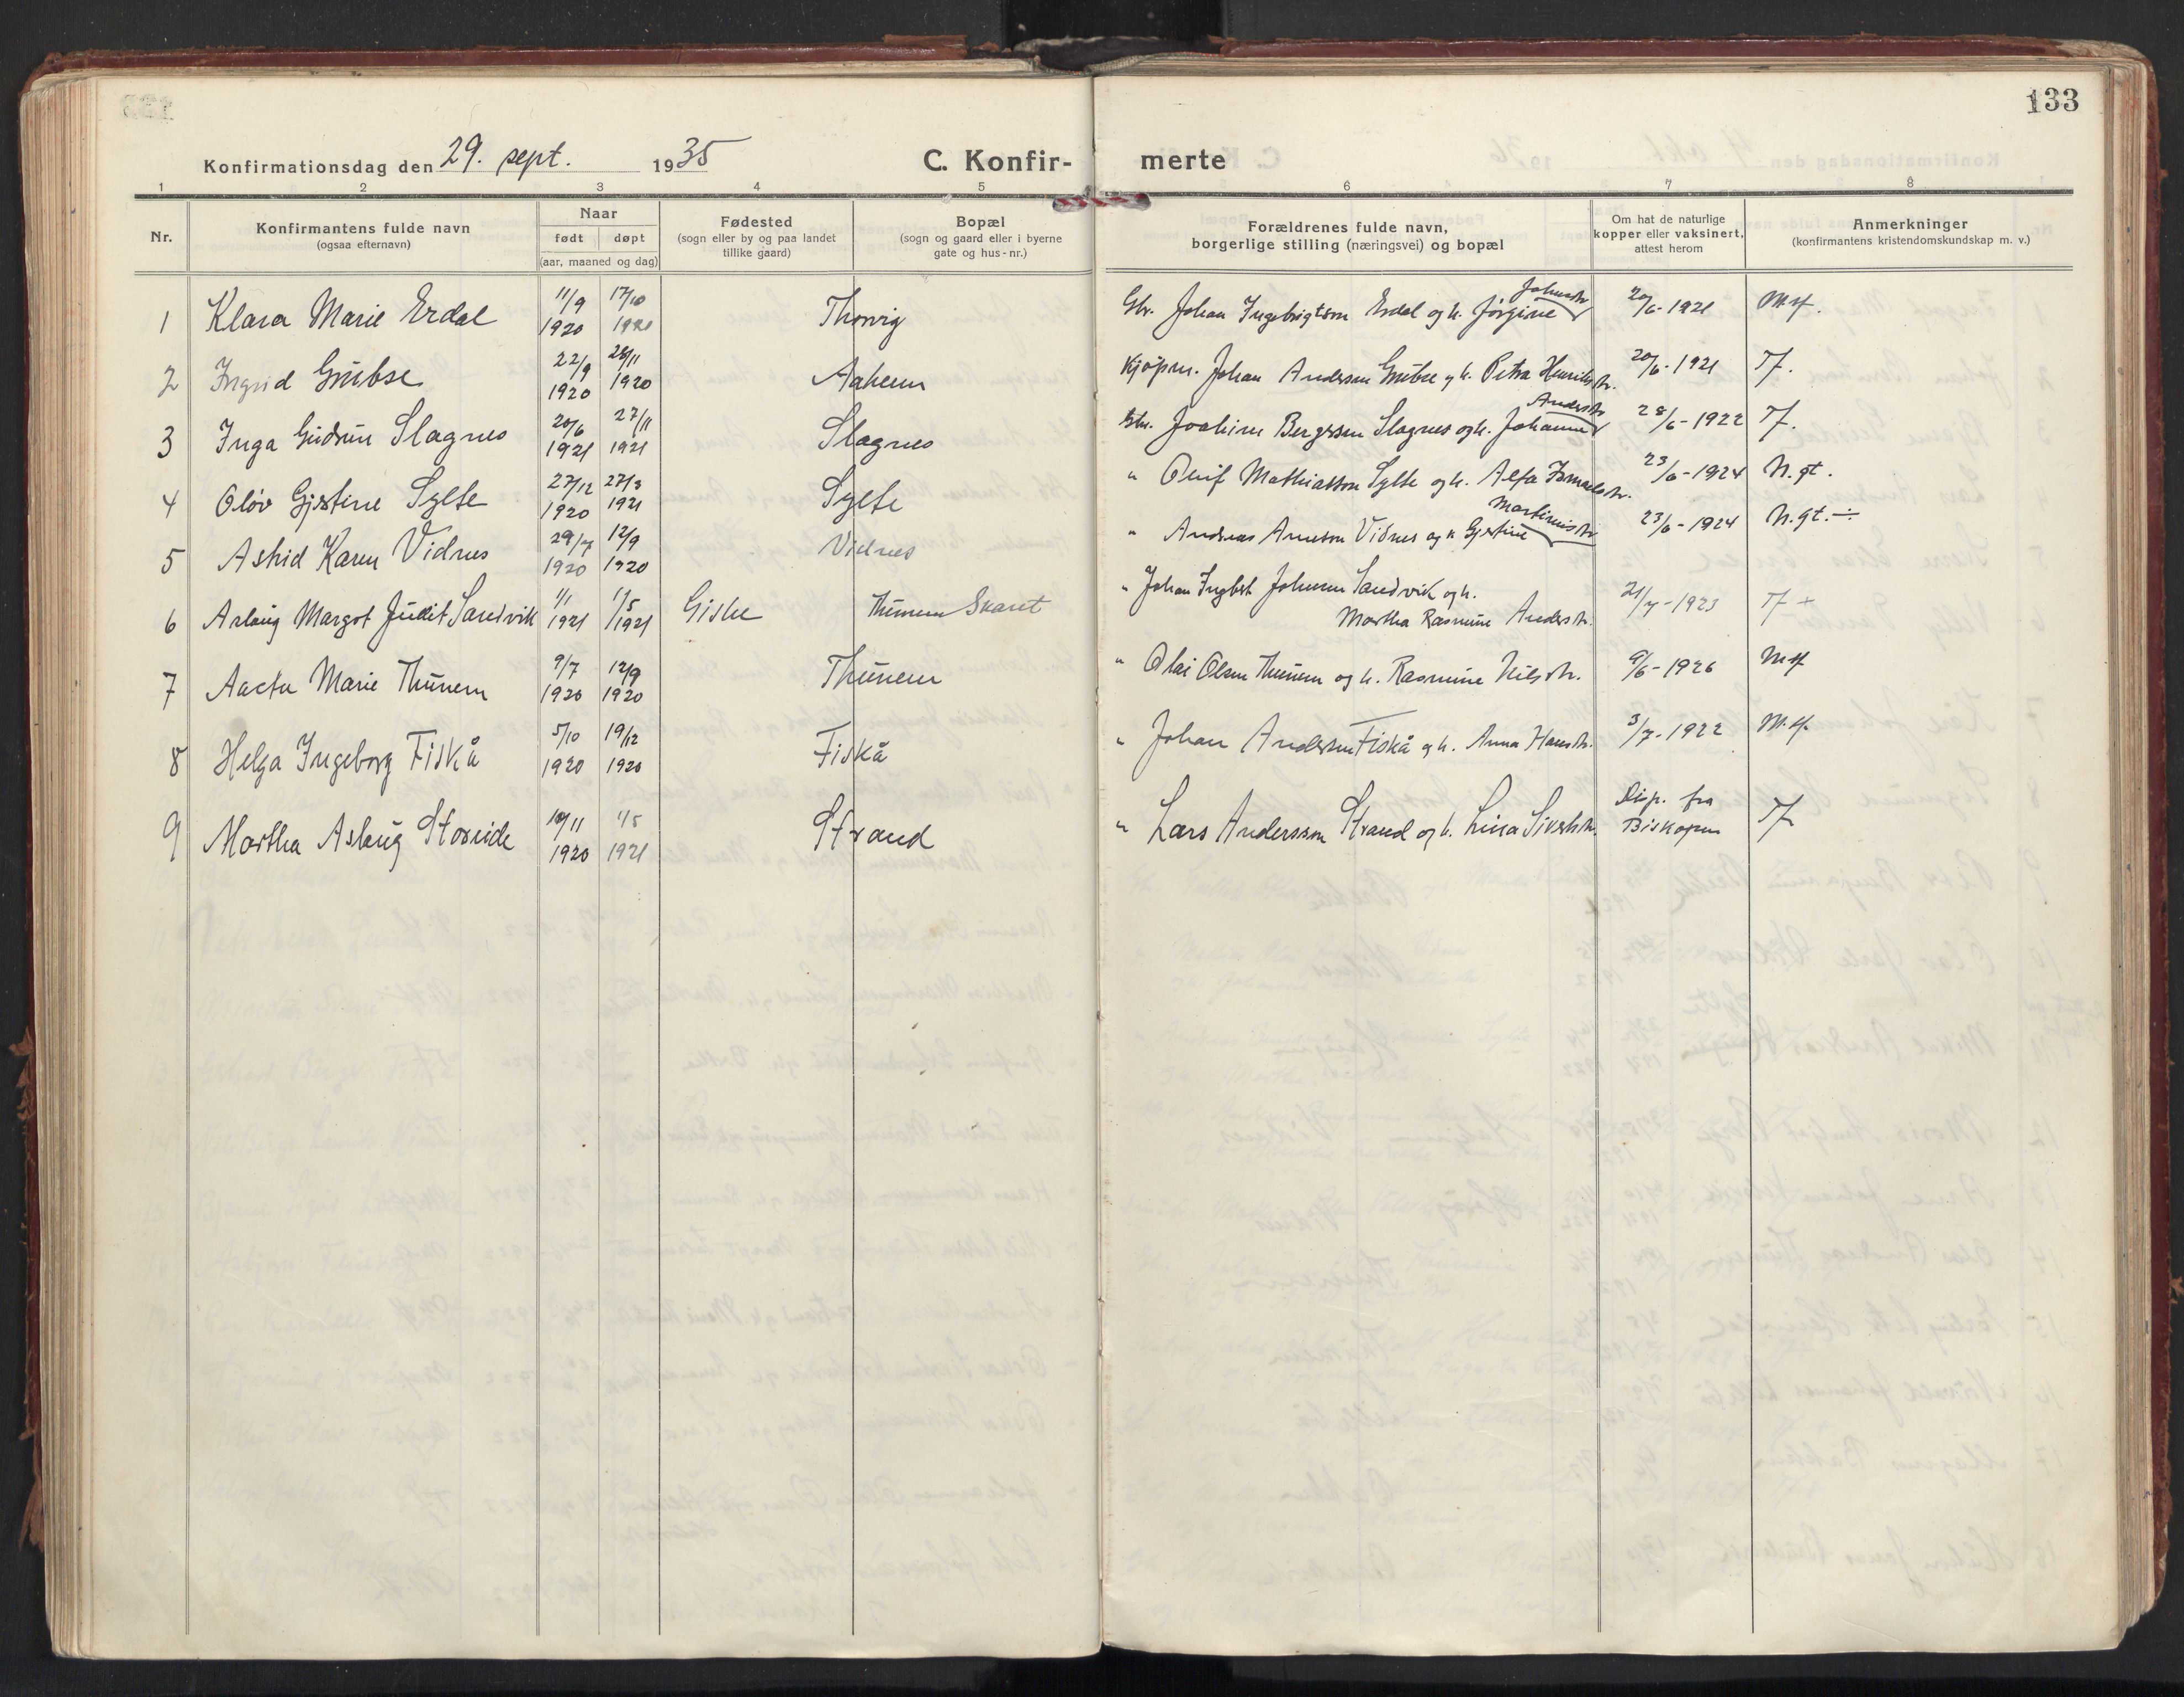 133
Konfirmationsdag den 29. sept. 1935
C. Konfir-merte
1 2 3 4 5 6 7 8
Nr.
Konfirmantens fulde navn
(ogsaa efternavn)
Naar
født døpt
(aar, maaned og dag)
Fødested
(sogn eller by og paa landet
tillike gaard)
Bopæl
(sogn og gaard eller i byerne
gate og hus-nr.)
Forældrenes fulde navn,
borgerlige stilling (næringsvei) og bopæl
Om hat de naturlige
kopper eller vaksinert,
attest herom
Anmerkninger
(konfirmantens kristendomskundskap m. v.)
1 Klara Marie Erdal 11/9 1920 17/10 1920 Thorvig Gbr. Johan Ingebrigtson Erdal og h. Jørgine Johnsdr 20/6-1921 M.sf.
2 Ingrid Grubse 22/9 1920 28/11 1920 Aaheim Kjøpm. Johan Andersen Grubse og h. Petra Henriksdr. 20/6-1921 Tf.
3 Inga Gudrun Slagnes 20/6 1921 27/11 1921 Slagnes Gbr. Joakim Bergesen Slagnes og h. Johanne Andersdr 28/6-1922 Tf.
4 Oløv Gjertine Sylte 27/12 1920 27/3 1921 Sylte " Oluf Mathiasson Sylte og h. Alfa Ismaelsdr. 23/6-1924 N.gt.
5 Astrid Karen Vidnes 29/7 1920 12/9 1920 Vidnes " Andreas Arneson Vidnes og h. Gjertine Martinusdr 23/6-1924 N.gt. ÷
6 Aslaug Margot Judit Sandvik 1/1 1921 1/5 1921 Giske Thunem Skaret " Johan Ingbrt Johnsen Sandvik og h.
Martha Rasmine Andersdr. 21/7-1923 Tf +
7 Aasta Marie Thunem 9/7 1920 12/9 1920 Thunem " Olai Olsen Thunem og h. Rasmine Nilsdr. 9/6-1926 M.sf
8 Helga Ingeborg Fiskå 5/10 1920 19/12 1920 Fiskå " Johan Andersen Fiskå og h. Anna Hansdr. 3/7-1922 M.sf.
9 Martha Aslaug Storeide 10/11 1920 1/5 1921 Strand " Lars Andersson Strand og h. Lina Sivertsdr. Disp. fra
Biskopen Tf